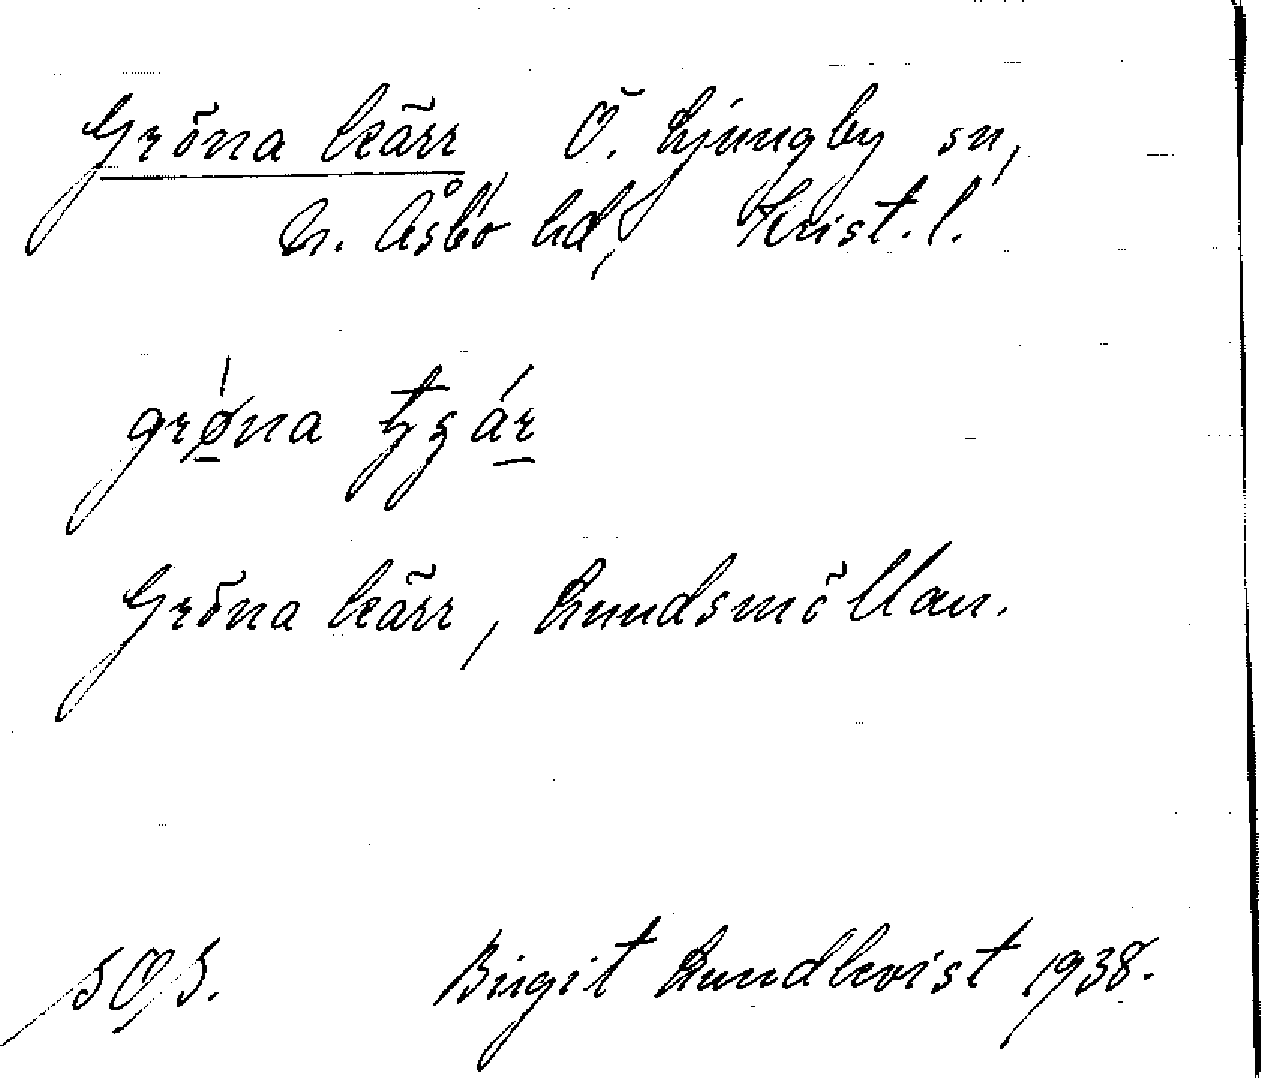 Gröna kärr Ö. Ljungby sn,
N. Åsbo hd, Krist. l.
grǿna tʒär
Gröna kärr, Lundsmöllan.
SOS. Birgit Lundkvist 1938.